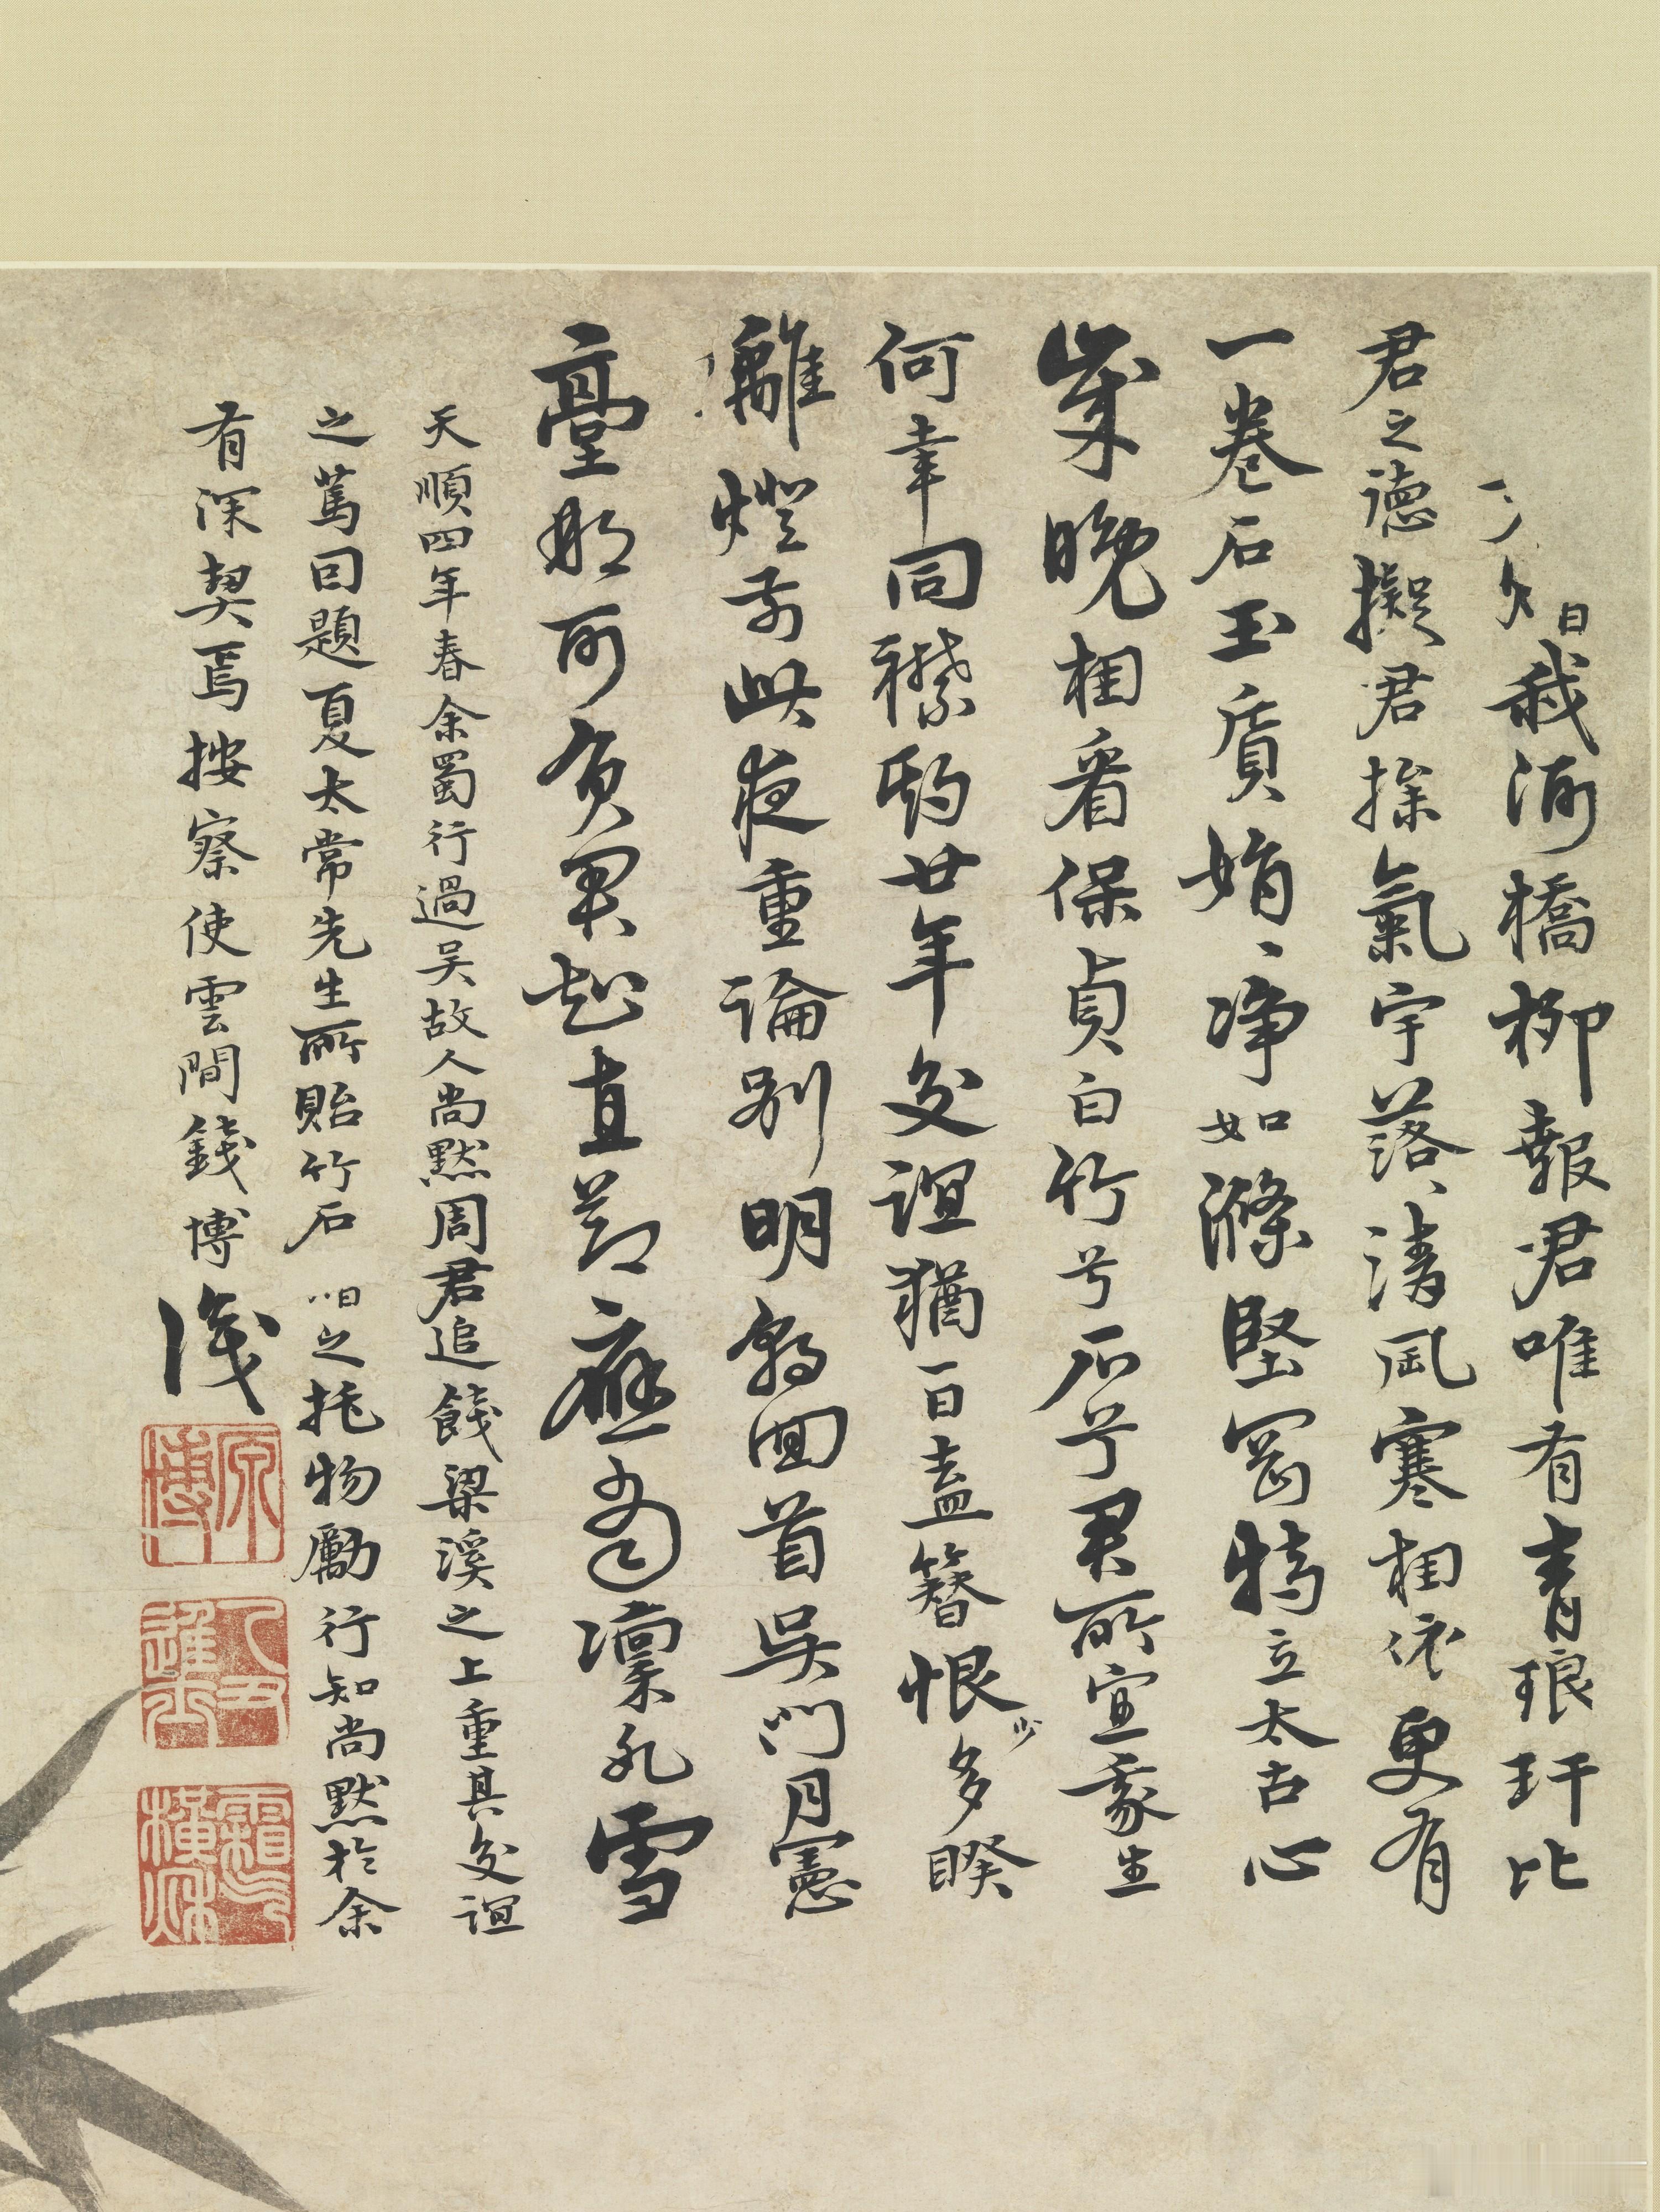 我河橋柳報君唯有青琅玕比
君之德擬君操氣宇落、清風寒相依更有
一卷石玉質娟、淨如滌堅密特立太古心
歲晚相看保貞白竹兮石兮君所宜家生
何幸同襟期廿年交誼猶一日盍簪恨少多睽
離燈前此夜重論別明朝回首吳門月憲
臺那可負君起直節應須凜氷雪
天順四年春余蜀行過吳故人尚默周君追餞梁溪之上重其交誼
之篤因題夏太常先生所貽竹石以之托物勵行知尚默於余
有深契焉按察使雲間錢博識
原博
進士